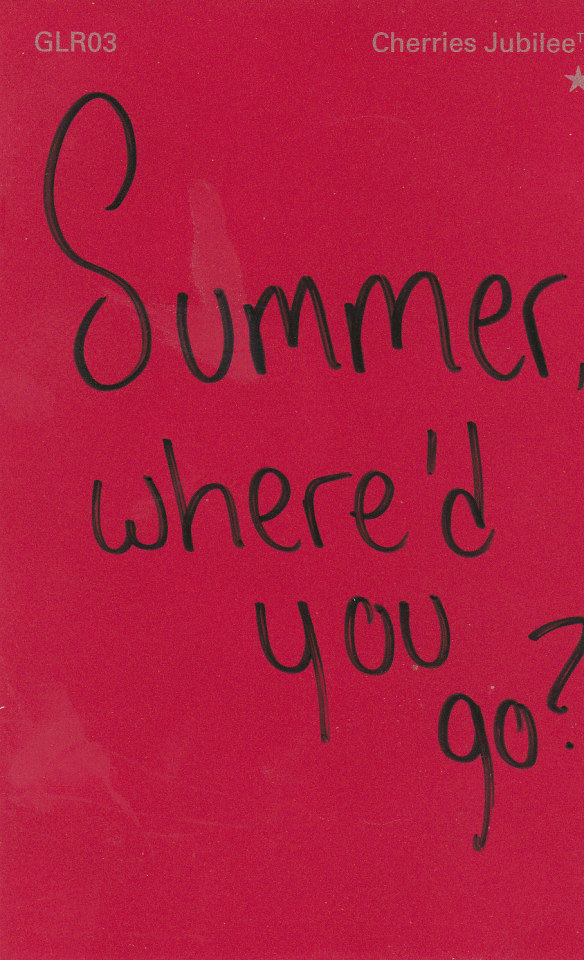 GLR03 Cherries Jubilee™
Summer,
where'd
you
go?